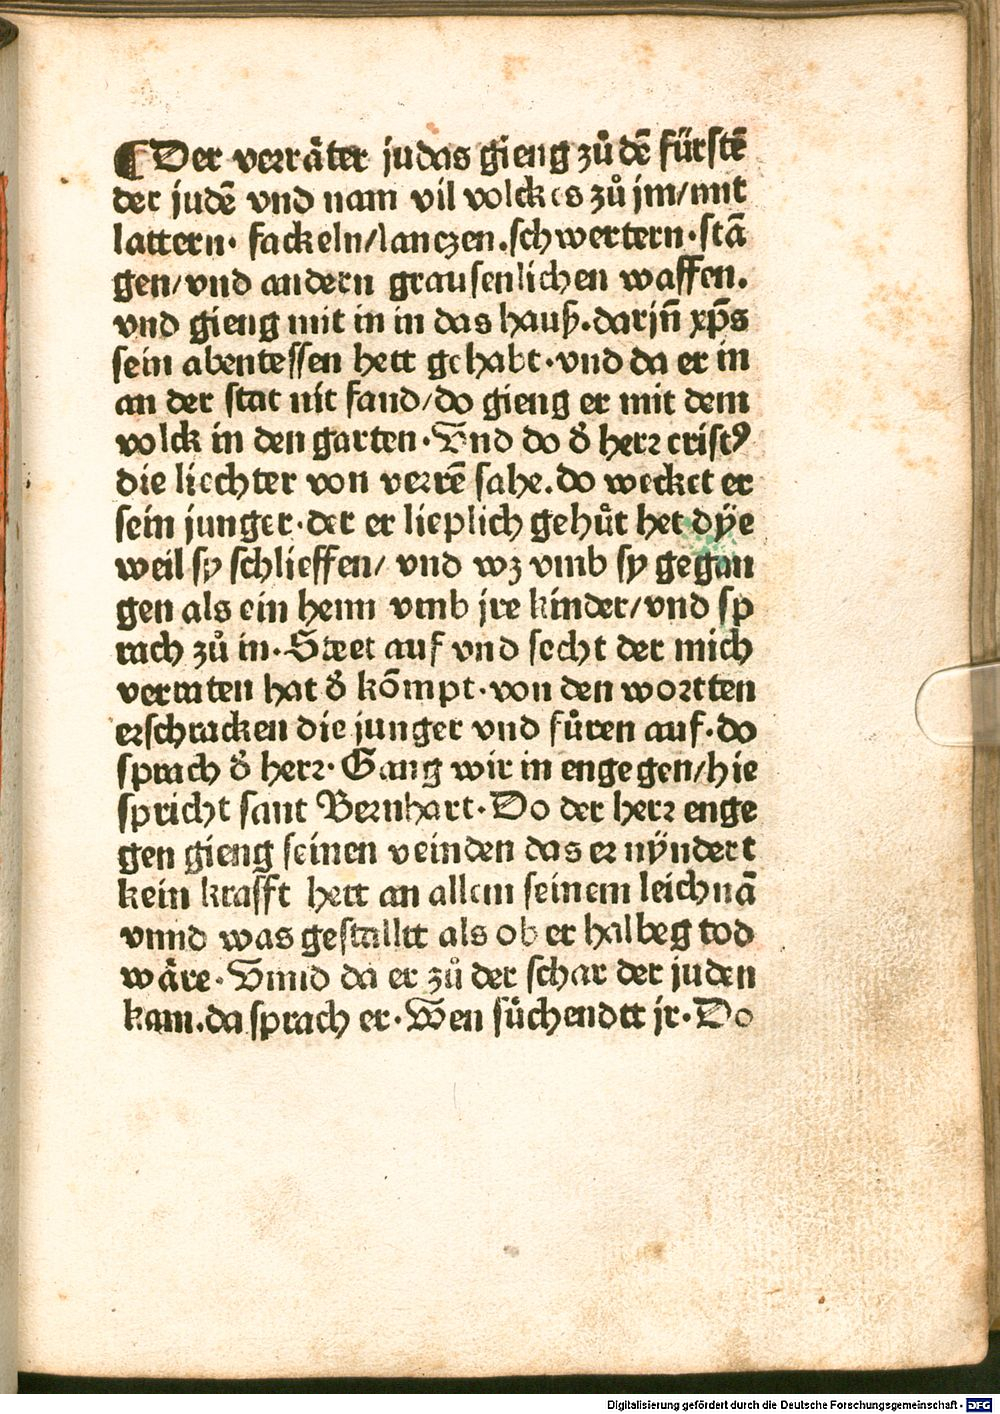 ¶Der verräter judas gieng zů dē fürstē
der judē vnd nam vil volckes zů jm/mit
lattern· fackeln/lanczen.schwertern·stā
gen/vnd andern grausenlichen waffen.
vnd gieng mit in in das hauß.darjn̄ xp̄s
sein abentessen hett gehabt·vnd da er in
an der stat nit fand/do gieng er mit dem
volck in den garten·Vnd do d̓ herr cristꝰ
die liechter von verrē sahe.do wecket er
sein junger·der er lieplich gehůt het dÿe
weil sy schlieffen/ vnd wz vmb sy gegan
gen als ein henn vmb jre kinder/vnd sp
rach zů in·Steet auf vnd secht der mich
verraten hat d̓ kōmpt·von den wortten
erschracken die junger vnd fůren auf·do
sprach d̓ herr·Gang wir in engegen/hie
spricht sant Bernhart·Do der herr enge
gen gieng seinen veinden das er nÿndert
kein krafft hett an allem seinem leichnā
vnnd was gestalltt als ob er halbeg tod
wäre·Vnnd da er zů der schar der juden
kam.da sprach er·Wen sůchendtt jr·Do
Digitalisierung gefördert durch die Deutsche Forschungsgemeinschaft - DFG